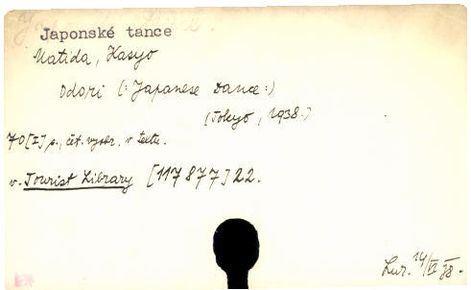 Japonské tance
Matida, Kasyo
Odori (: Japanese Dance :)
(Tokyo, 1938.)
70 [I] p., čet. vyobr. v textu.
v. Tourist Library [117877] 22.
Lur. 14/VI 38.